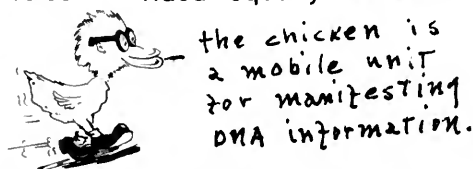 the chicken is
a mobile unit
for manifesting
DNA information.